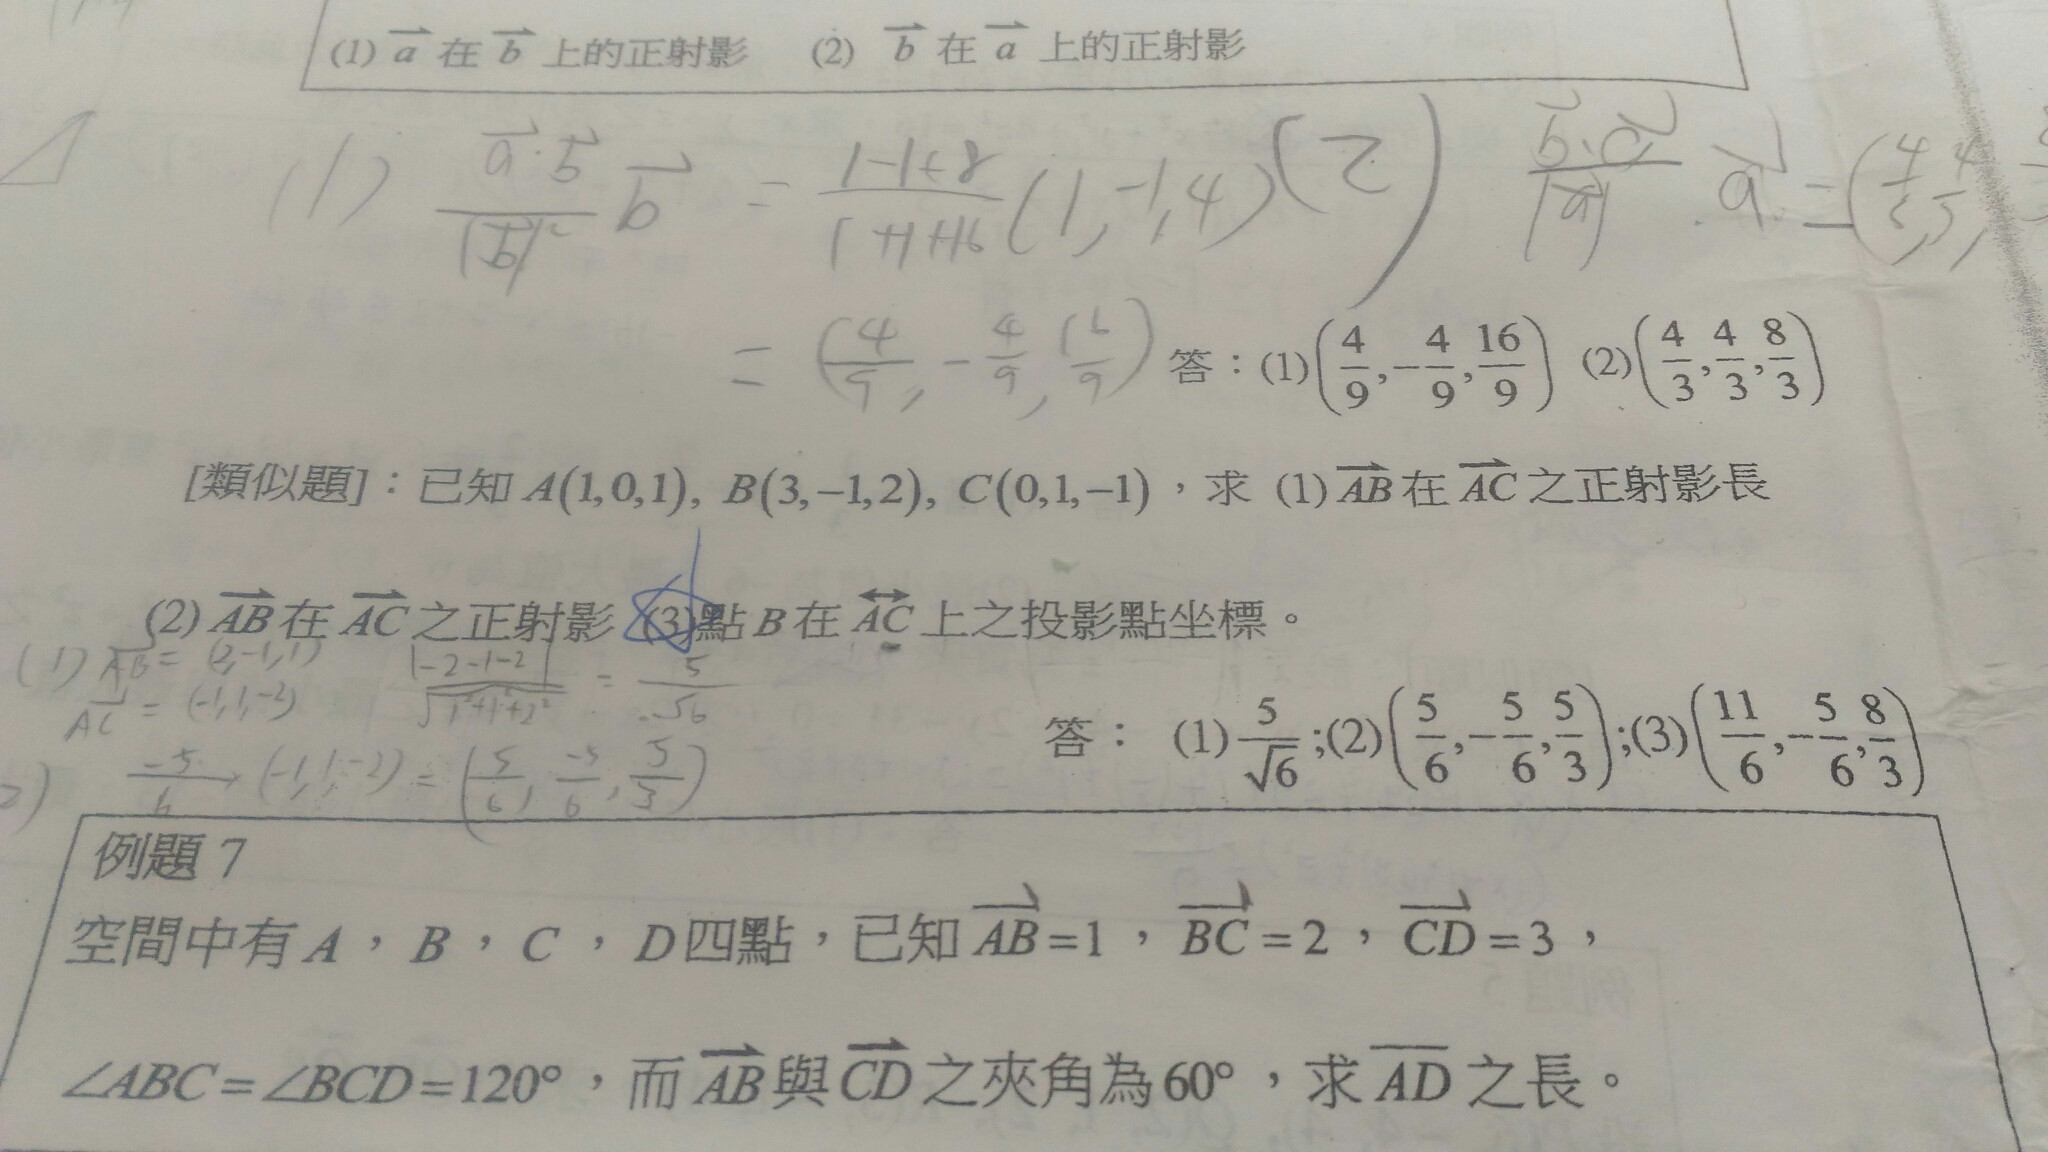 (1) a 在 b 上的正射影 (2) b 在 a 上的正射影
(1) a·b/|b|² b = 1-1+8/1+1+16 (1,-1,4) (2) b·a/|a| · a = (4/3, 4/3,
= (4/9, -4/9, 16/9) 答：(1)(4/9, -4/9, 16/9) (2)(4/3, 4/3, 8/3)
[類似題]：已知 A(1,0,1), B(3,-1,2), C(0,1,-1)，求 (1) AB 在 AC 之正射影長
(2) AB 在 AC 之正射影 (3)點 B 在 AC 上之投影點坐標。
(1) AB = (2,-1,1) |-2-1-2|/√1²+1²+2² = 5/√6
AC = (-1,1,-2)
答： (1) 5/√6 ;(2)(5/6, -5/6, 5/3);(3)(11/6, -5/6, 8/3)
2) -5/6 (-1,1,-2) = (5/6, -5/6, 5/3)
例題 7
空間中有 A ， B ， C ， D 四點，已知 AB =1 ， BC = 2 ， CD = 3 ，
∠ABC = ∠BCD = 120° ，而 AB 與 CD 之夾角為 60° ，求 AD 之長。